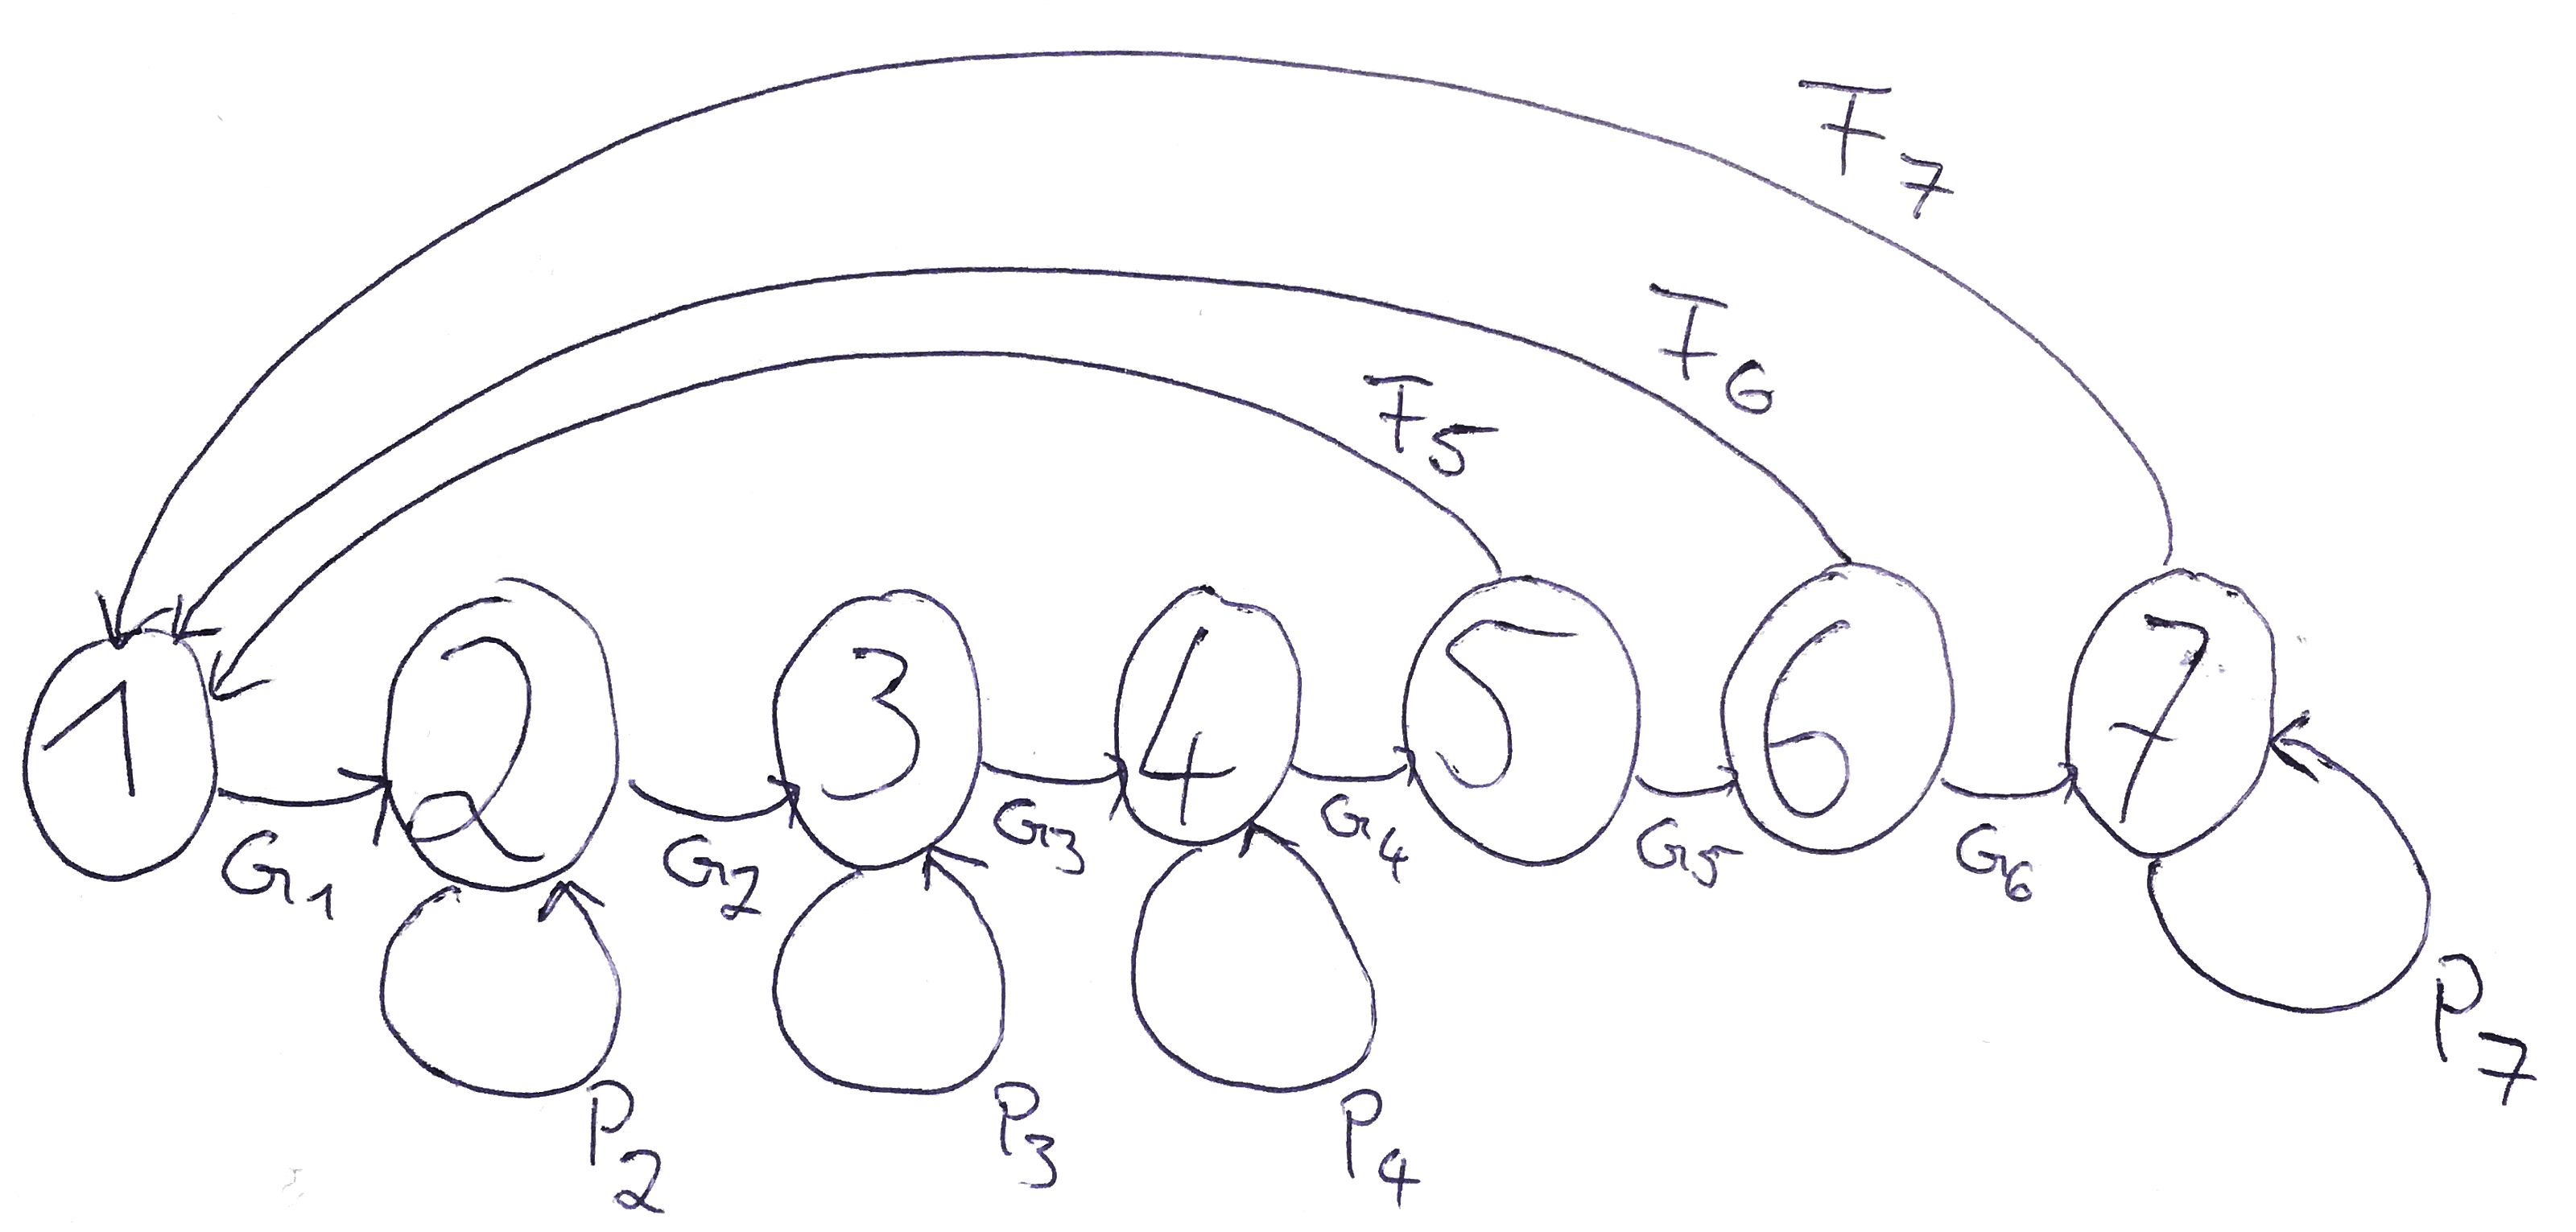 F7
F6
F5
1 2 3 4 5 6 7
G1 G2 G3 G4 G5 G6
P2 P3 P4 P7